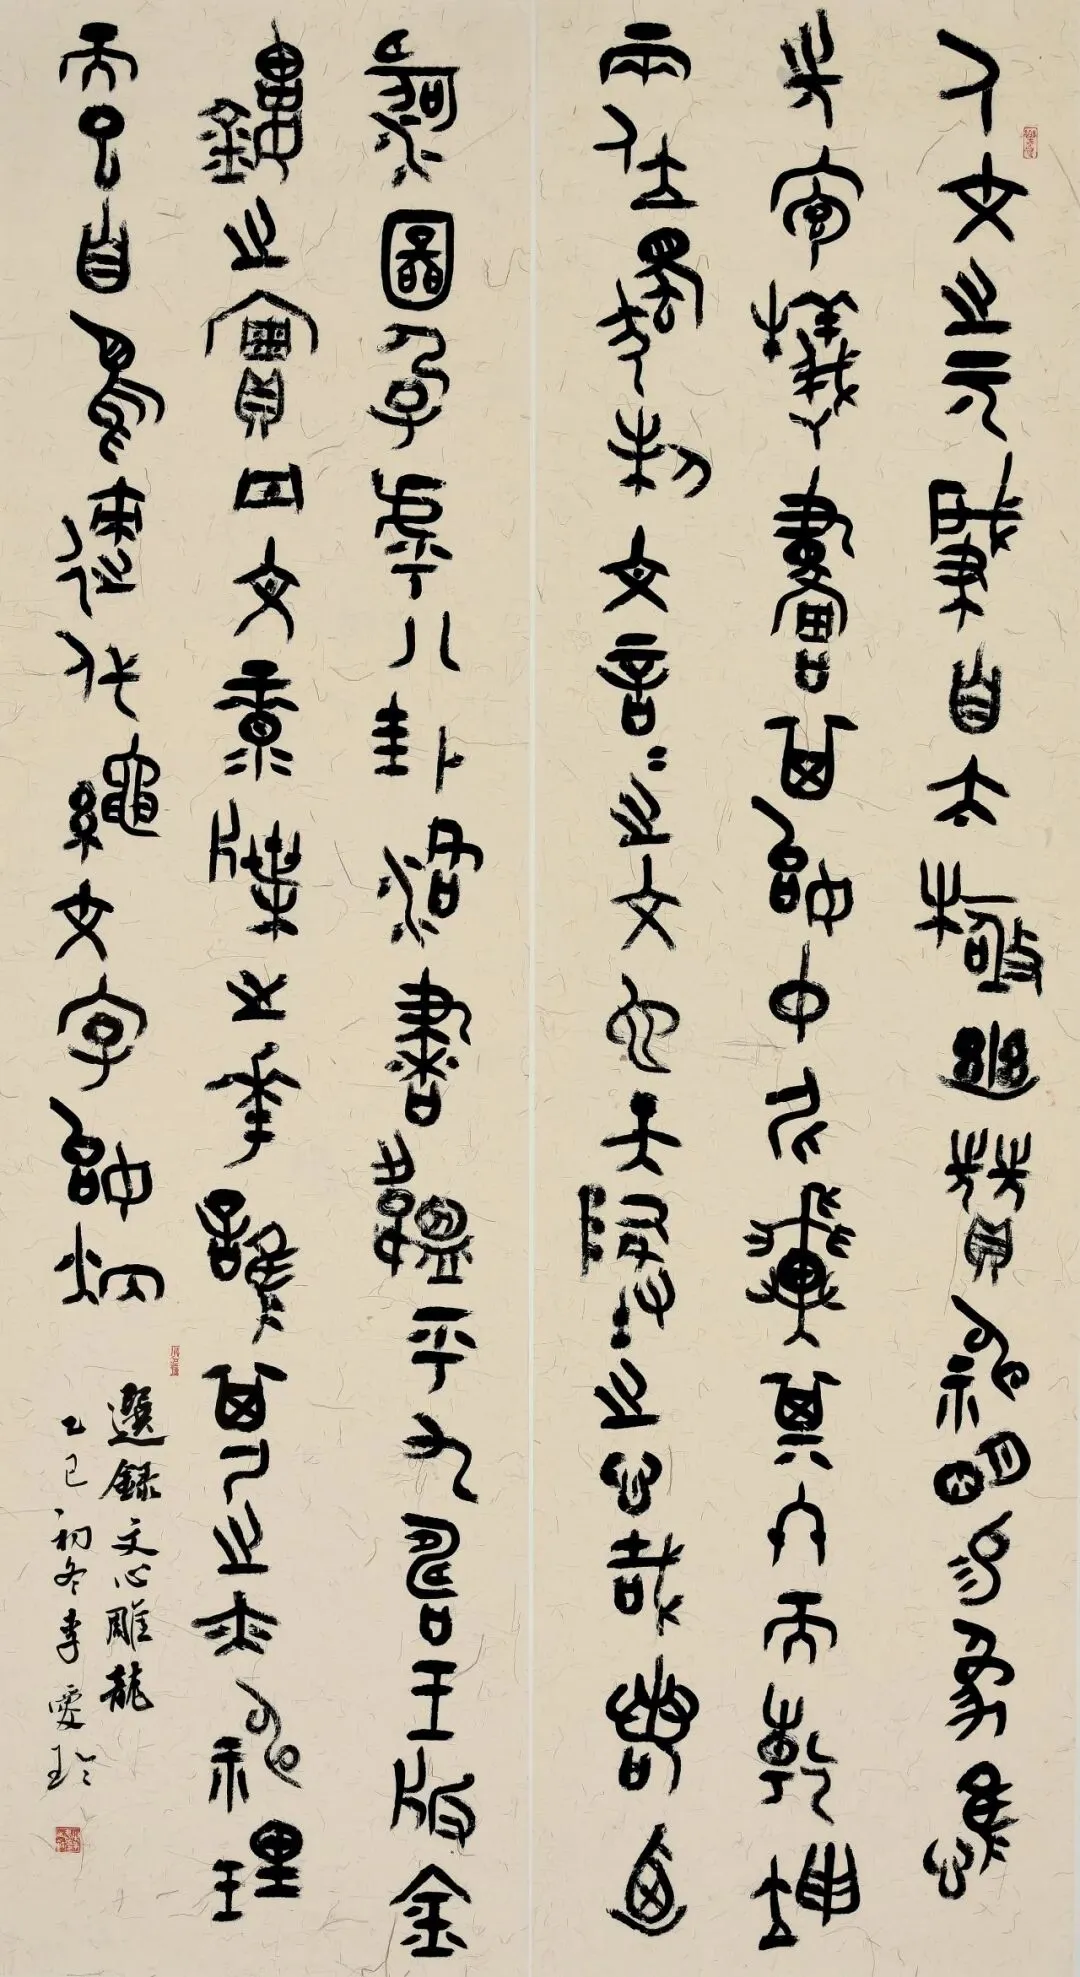 人文之元肇自太極幽贊神明易象惟
先庖犧畫其始仲尼翼其終而乾坤
兩位獨制文言言之文也天地之心哉若迺
河圖孕乎八卦洛書韞乎九疇玉版金
鏤之實丹文綠牒之華誰其尸之亦神理
而已自鳥迹代繩文字始炳
選録文心雕龍
乙巳初冬李玲